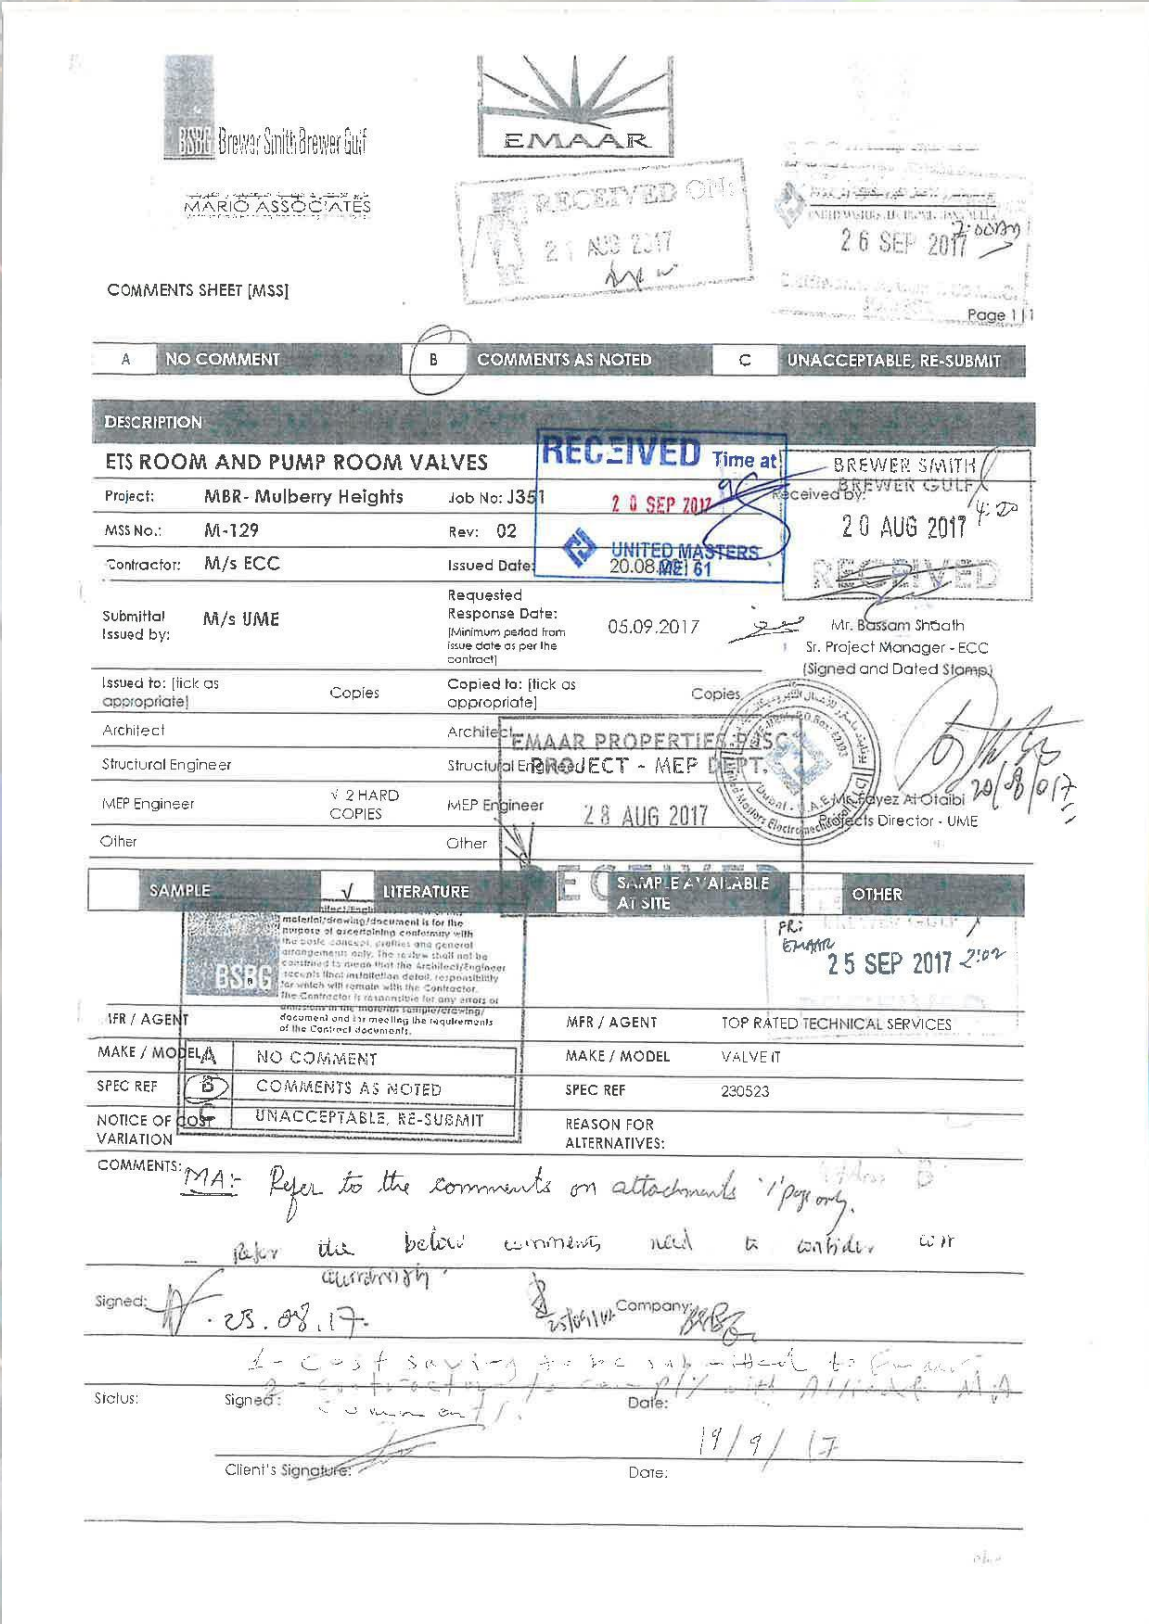 BSBG Brewer Smith Brewer Gulf
EMAAR
MARIO ASSOCIATES
RECEIVED ON:
21 AUG 2017
26 SEP 2017
COMMENTS SHEET [MSS]
Page 1|1
A NO COMMENT B COMMENTS AS NOTED C UNACCEPTABLE, RE-SUBMIT
DESCRIPTION
ETS ROOM AND PUMP ROOM VALVES
RECEIVED Time at
20 SEP 2017
UNITED MASTERS
ME 61
BREWER SMITH
BREWER GULF
Received by:
20 AUG 2017 4:20
RECEIVED
Project: MBR- Mulberry Heights Job No: J351
MSS No.: M-129 Rev: 02
Contractor: M/s ECC Issued Date: 20.08
Submittal Issued by: M/s UME
Requested Response Date: [Minimum period from issue date as per the contract] 05.09.2017
Mr. Bassam Shaath
Sr. Project Manager - ECC
(Signed and Dated Stamp)
Issued to: [tick as appropriate] Copies Copied to: [tick as appropriate] Copies
Architect Architect
Structural Engineer Structural Engineer
MEP Engineer √ 2 HARD COPIES MEP Engineer
Other Other
EMAAR PROPERTIES PJSC
PROJECT - MEP DEPT.
28 AUG 2017
RECEIVED
20/08/017
Mr. Fayez Al Otaibi
Projects Director - UME
SAMPLE √ LITERATURE SAMPLE AVAILABLE AT SITE OTHER
BSBG
material/drawing/document is for the
purpose of ascertaining conformity with
the basic concept, profiles and general
arrangements only. The review shall not be
construed to mean that the Architect/Engineer
accepts that installation detail, responsibility
for which will remain with the Contractor.
The Contractor is responsible for any errors or
omissions in the material sample/drawing/
document and for meeting the requirements
of the Contract documents.
A NO COMMENT
B COMMENTS AS NOTED
C UNACCEPTABLE, RE-SUBMIT
EMAAR
25 SEP 2017 2:02
MFR / AGENT MFR / AGENT TOP RATED TECHNICAL SERVICES
MAKE / MODEL MAKE / MODEL VALVE IT
SPEC REF SPEC REF 230523
NOTICE OF COST VARIATION REASON FOR ALTERNATIVES:
COMMENTS: MA:- Refer to the comments on attachments '1' page only.
- Refer the below comments need to consider
Signed: 23.08.17. Company: BSBG
1- Cost saving to be submitted to Emaar.
2- Contractor to comply with MA
comments.
Status: Signed: Date:
19/9/17
Client's Signature: Date: